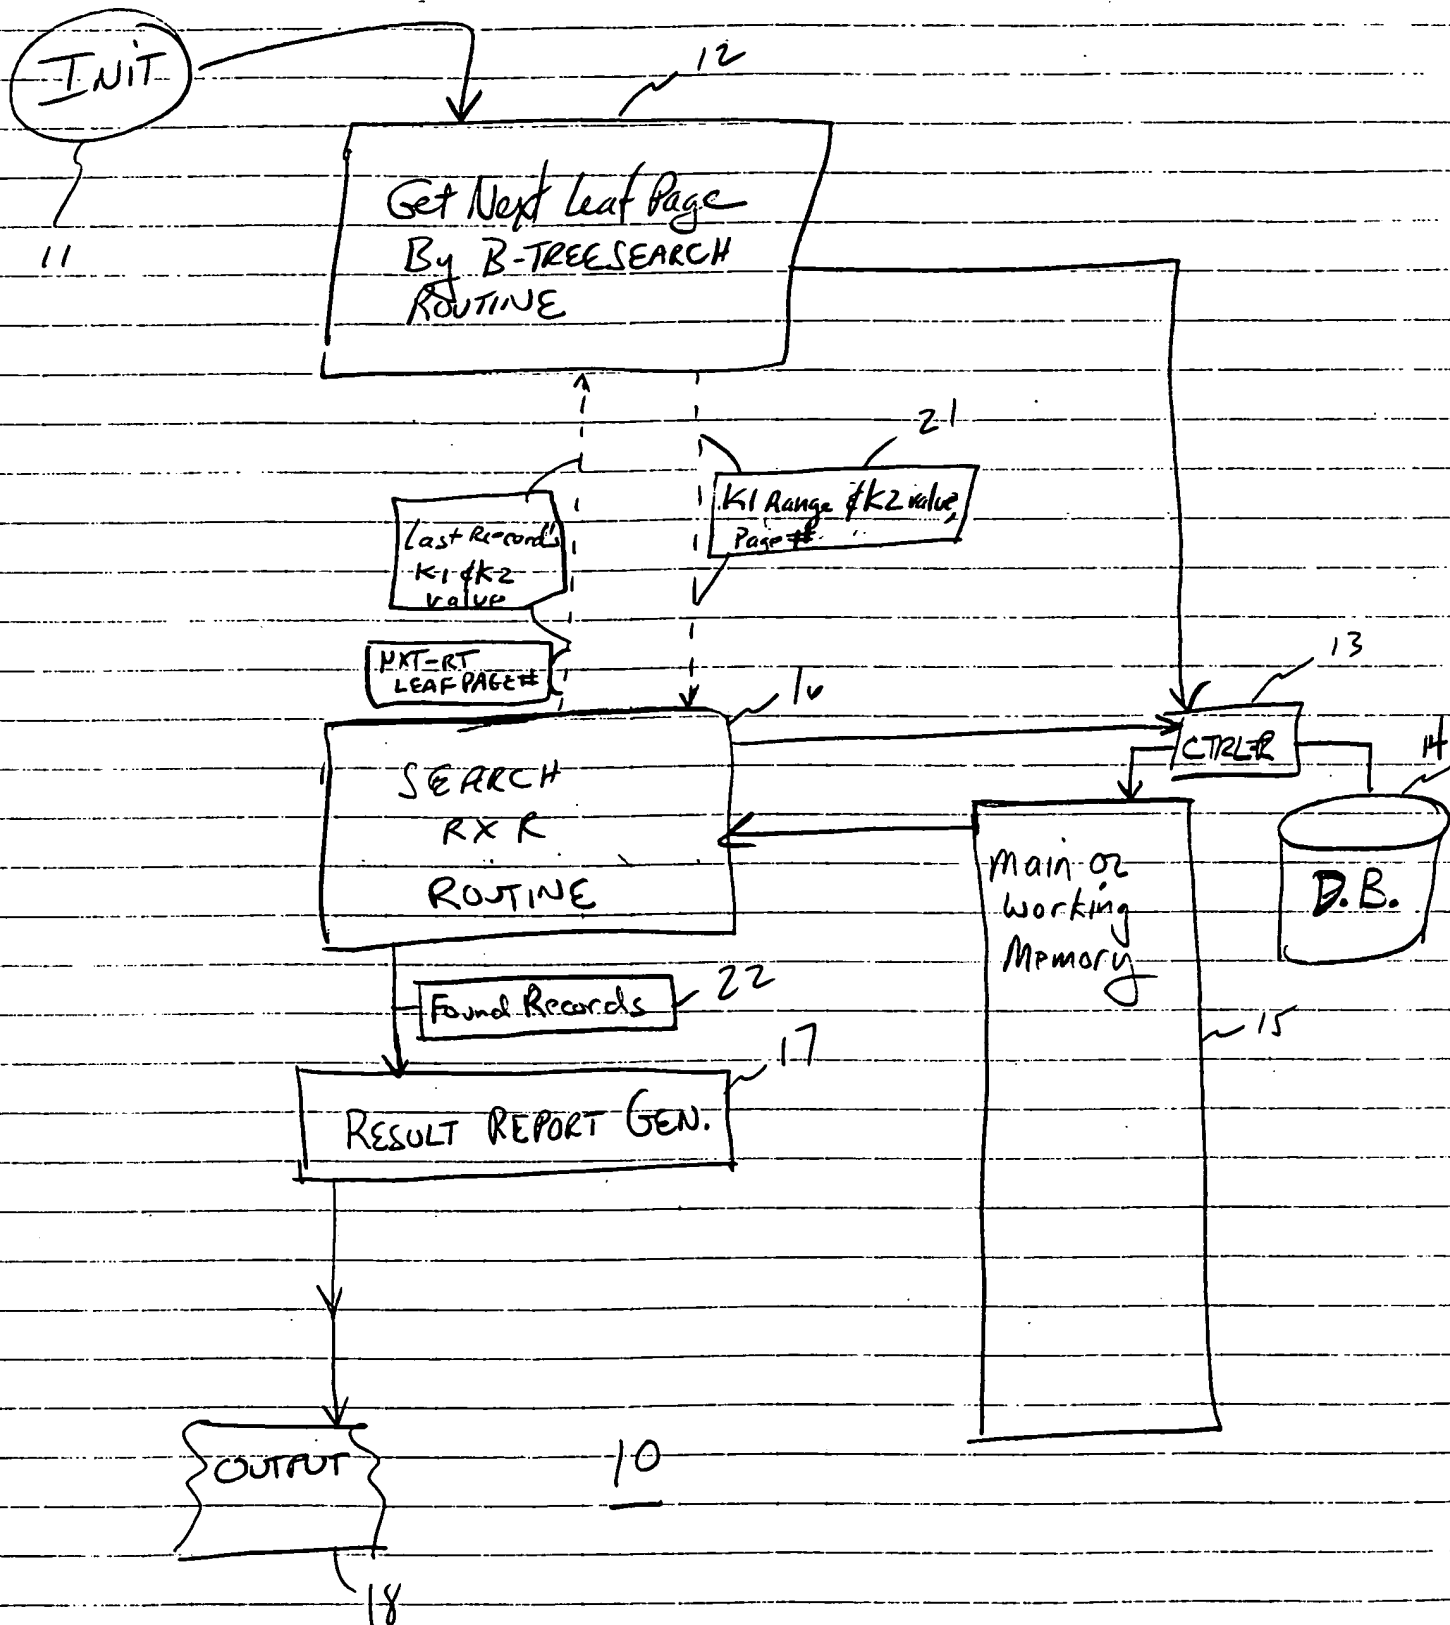 INIT
12
11
Get Next Leaf Page
By B-TREE SEARCH
ROUTINE
21
K1 Range & K2 value,
Page #
Last Record's
K1 & K2
value
NXT-RT
LEAF PAGE #
16
13
CTRLER
14
SEARCH
RXR
ROUTINE
Main or
working
Memory
D.B.
Found Records
22
15
17
RESULT REPORT GEN.
OUTPUT
10
18